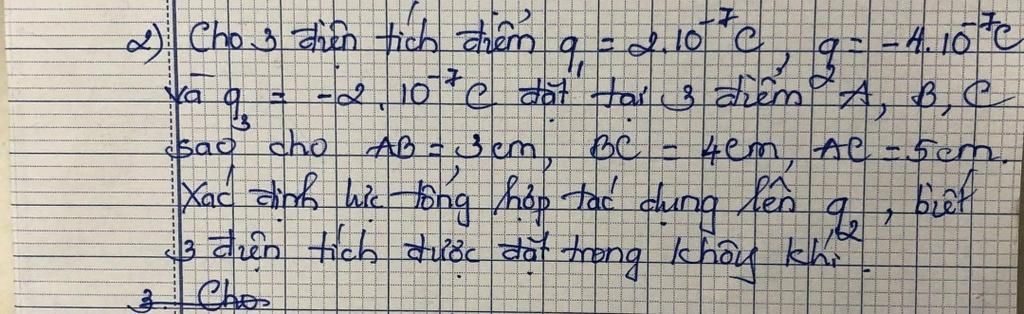 2) Cho 3 điện tích điểm q₁ = 2.10⁻⁷C, q₂ = -4.10⁻⁷C
và q₃ = -2.10⁻⁷C đặt tại 3 điểm A, B, C
sao cho AB = 3cm, BC = 4cm, AC = 5cm.
Xác định lực tổng hợp tác dụng lên q₂, biết
3 điện tích được đặt trong không khí.
3. Cho